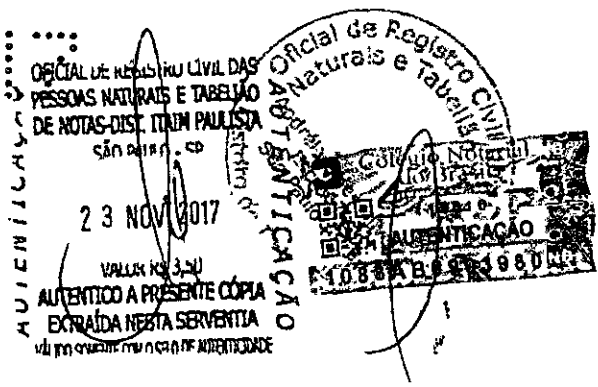 OFICIAL DE REGISTRO CIVIL DAS
PESSOAS NATURAIS E TABELIÃO
DE NOTAS-DIST. ITAIM PAULISTA
SÃO PAULO - SP
23 NOV 2017
VALOR R$ 3,50
AUTENTICO A PRESENTE CÓPIA
EXTRAÍDA NESTA SERVENTIA
VÁLIDO SOMENTE COM O SELO DE AUTENTICIDADE
AUTENTICAÇÃO
AUTENTICAÇÃO
Oficial de Registro Civil
Naturais e Tabeliã
Colégio Notarial
do Brasil
AUTENTICAÇÃO